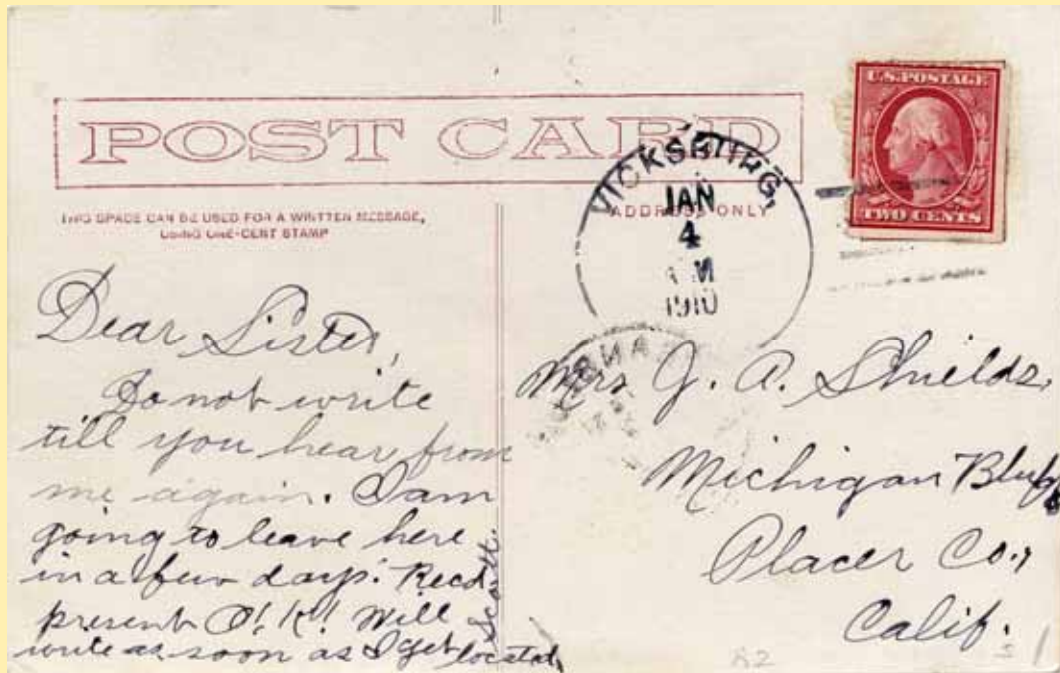 POST CARD
THIS SPACE CAN BE USED FOR A WRITTEN MESSAGE,
USING ONE-CENT STAMP
ADDRESS ONLY
U.S. POSTAGE
TWO CENTS
VICKSBURG,
JAN
4
M
1910
Dear Sister,
Do not write
till you hear from
me again. I am
going to leave here
in a few days. Recd
present O.K! Will
write as soon as I get located
Scott.
Mrs J. A. Shields,
Michigan Bluff
Placer Co.,
Calif.